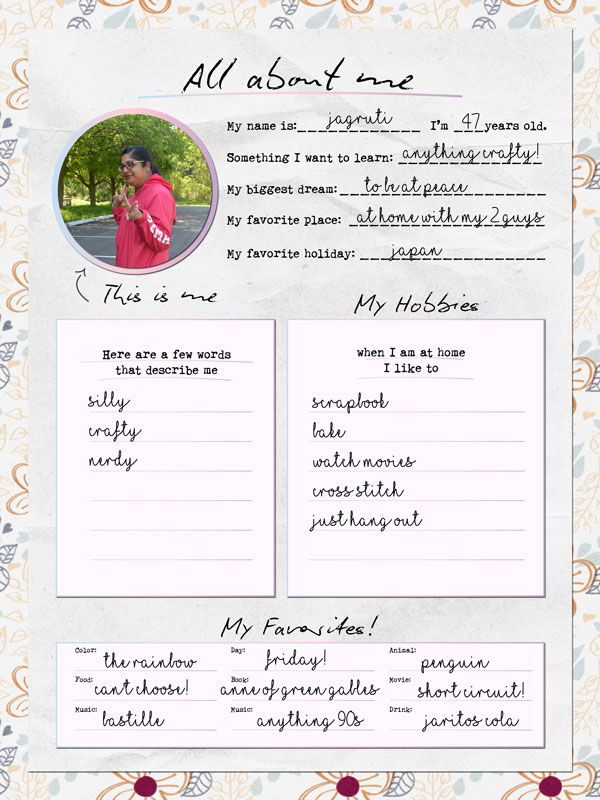 All about me
My name is: jagruti I'm 47 years old.
Something I want to learn: anything crafty!
My biggest dream: to be at peace
My favorite place: at home with my 2 guys
My favorite holiday: japan
This is me
My Hobbies
Here are a few words
that describe me
silly
crafty
nerdy
when I am at home
I like to
scrapbook
bake
watch movies
cross stitch
just hang out
My Favorites!
Color: the rainbow Day: friday! Animal: penguin
Food: can't choose! Book: anne of green gables Movie: short circuit!
Music: bastille Music: anything 90s Drink: jaritos cola